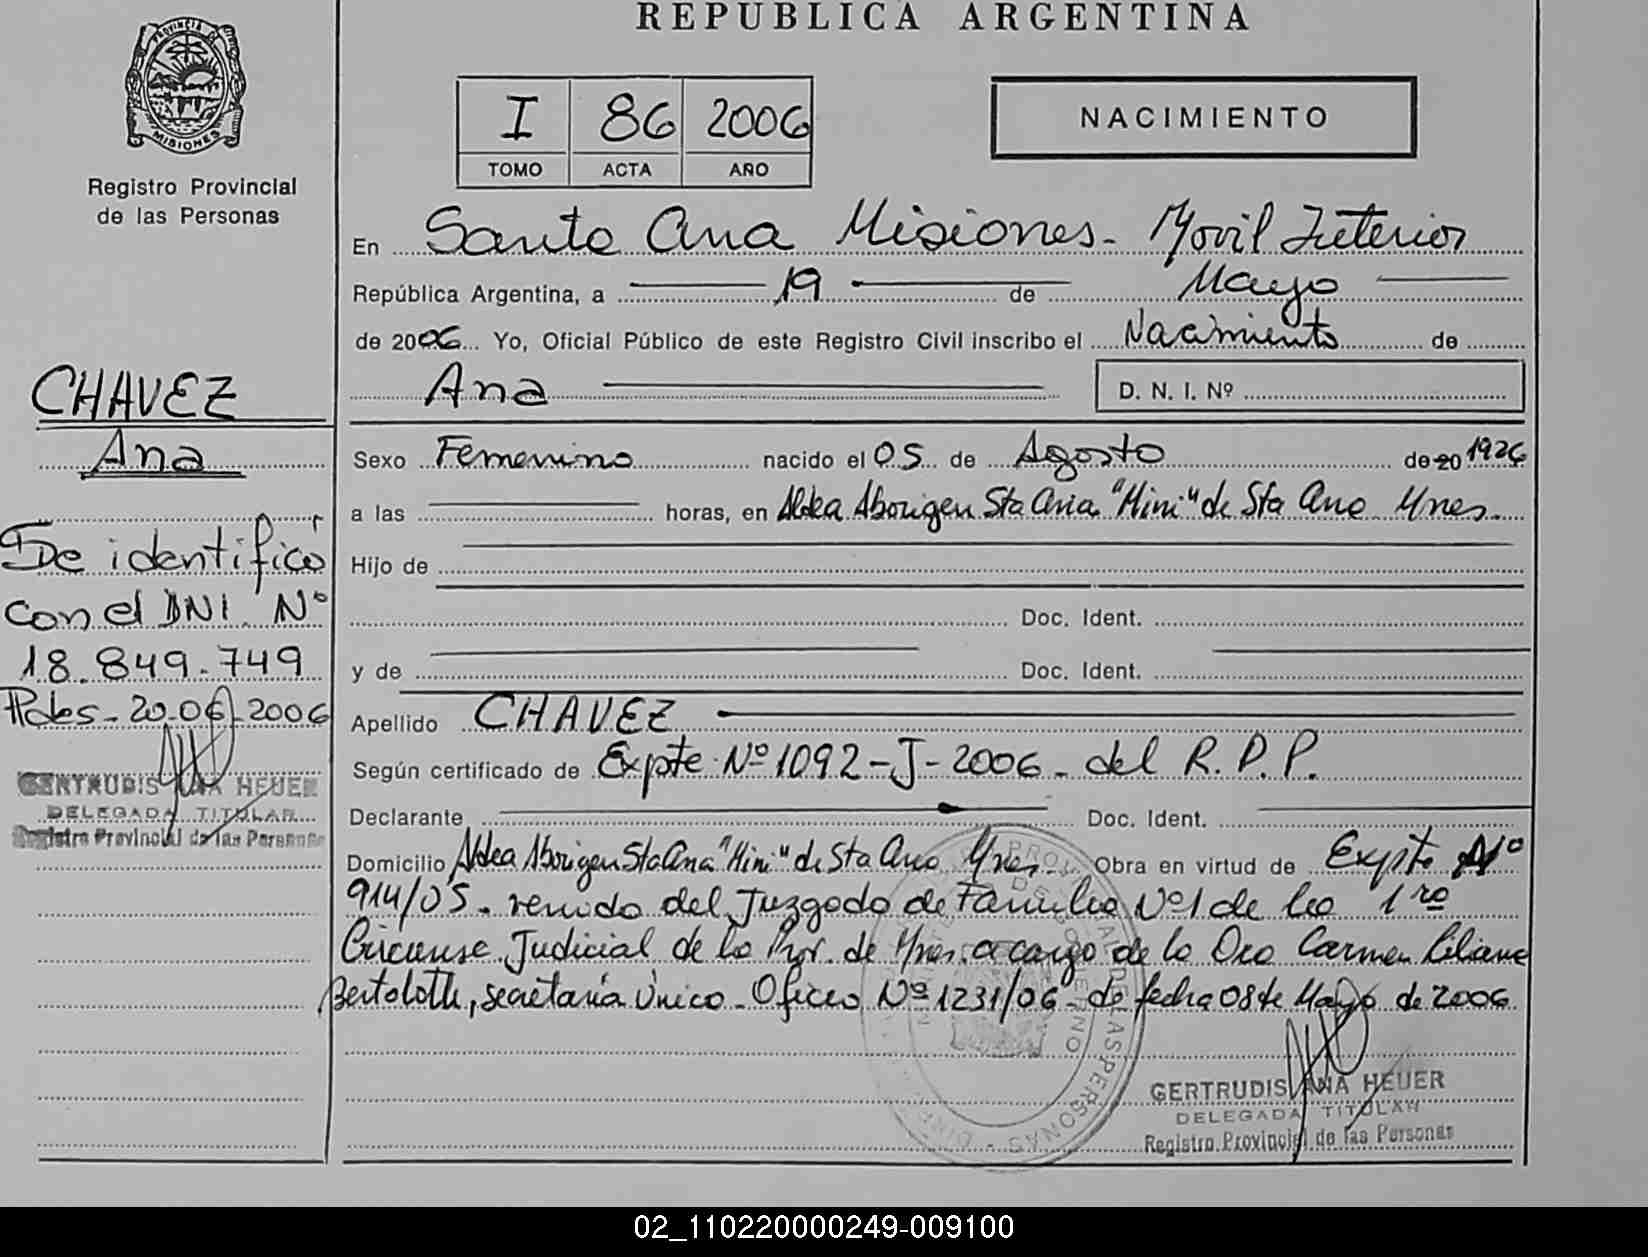 REPUBLICA ARGENTINA
PROVINCIA DE MISIONES
Registro Provincial
de las Personas
I 86 2006
TOMO ACTA AÑO
NACIMIENTO
En Santa Ana Misiones - Movil Interior
República Argentina, a 19 de Mayo
de 2006 Yo, Oficial Público de este Registro Civil inscribo el Nacimiento de
Ana D. N. I. Nº
CHAVEZ
Ana
Sexo Femenino nacido el 05 de Agosto de 20 1926
a las horas, en Aldea Aborigen Sta Ana "Mini" de Sta Ana Mnes.
Hijo de
Doc. Ident.
y de Doc. Ident.
Apellido CHAVEZ
Según certificado de Expte Nº 1092-J-2006 - del R. P. P.
Declarante Doc. Ident.
Domicilio Aldea Aborigen Sta Ana "Mini" de Sta Ana Mnes. Obra en virtud de Expte Nº
914/05. venido del Juzgado de Familia Nº1 de la 1ra
Judicial de la Prov. de Mnes. a cargo de la Dra Carmen Liliana
secretaría Unica - Oficio Nº 1231/06 - de fecha 08 de Mayo de 2006.
Se identificó
con el DNI Nº
18.849.749
Pdas - 20-06-2006
GERTRUDIS ANA HEUER
DELEGADA TITULAR
Registro Provincial de las Personas
GERTRUDIS ANA HEUER
DELEGADA TITULAR
Registro Provincial de las Personas
02_110220000249-009100